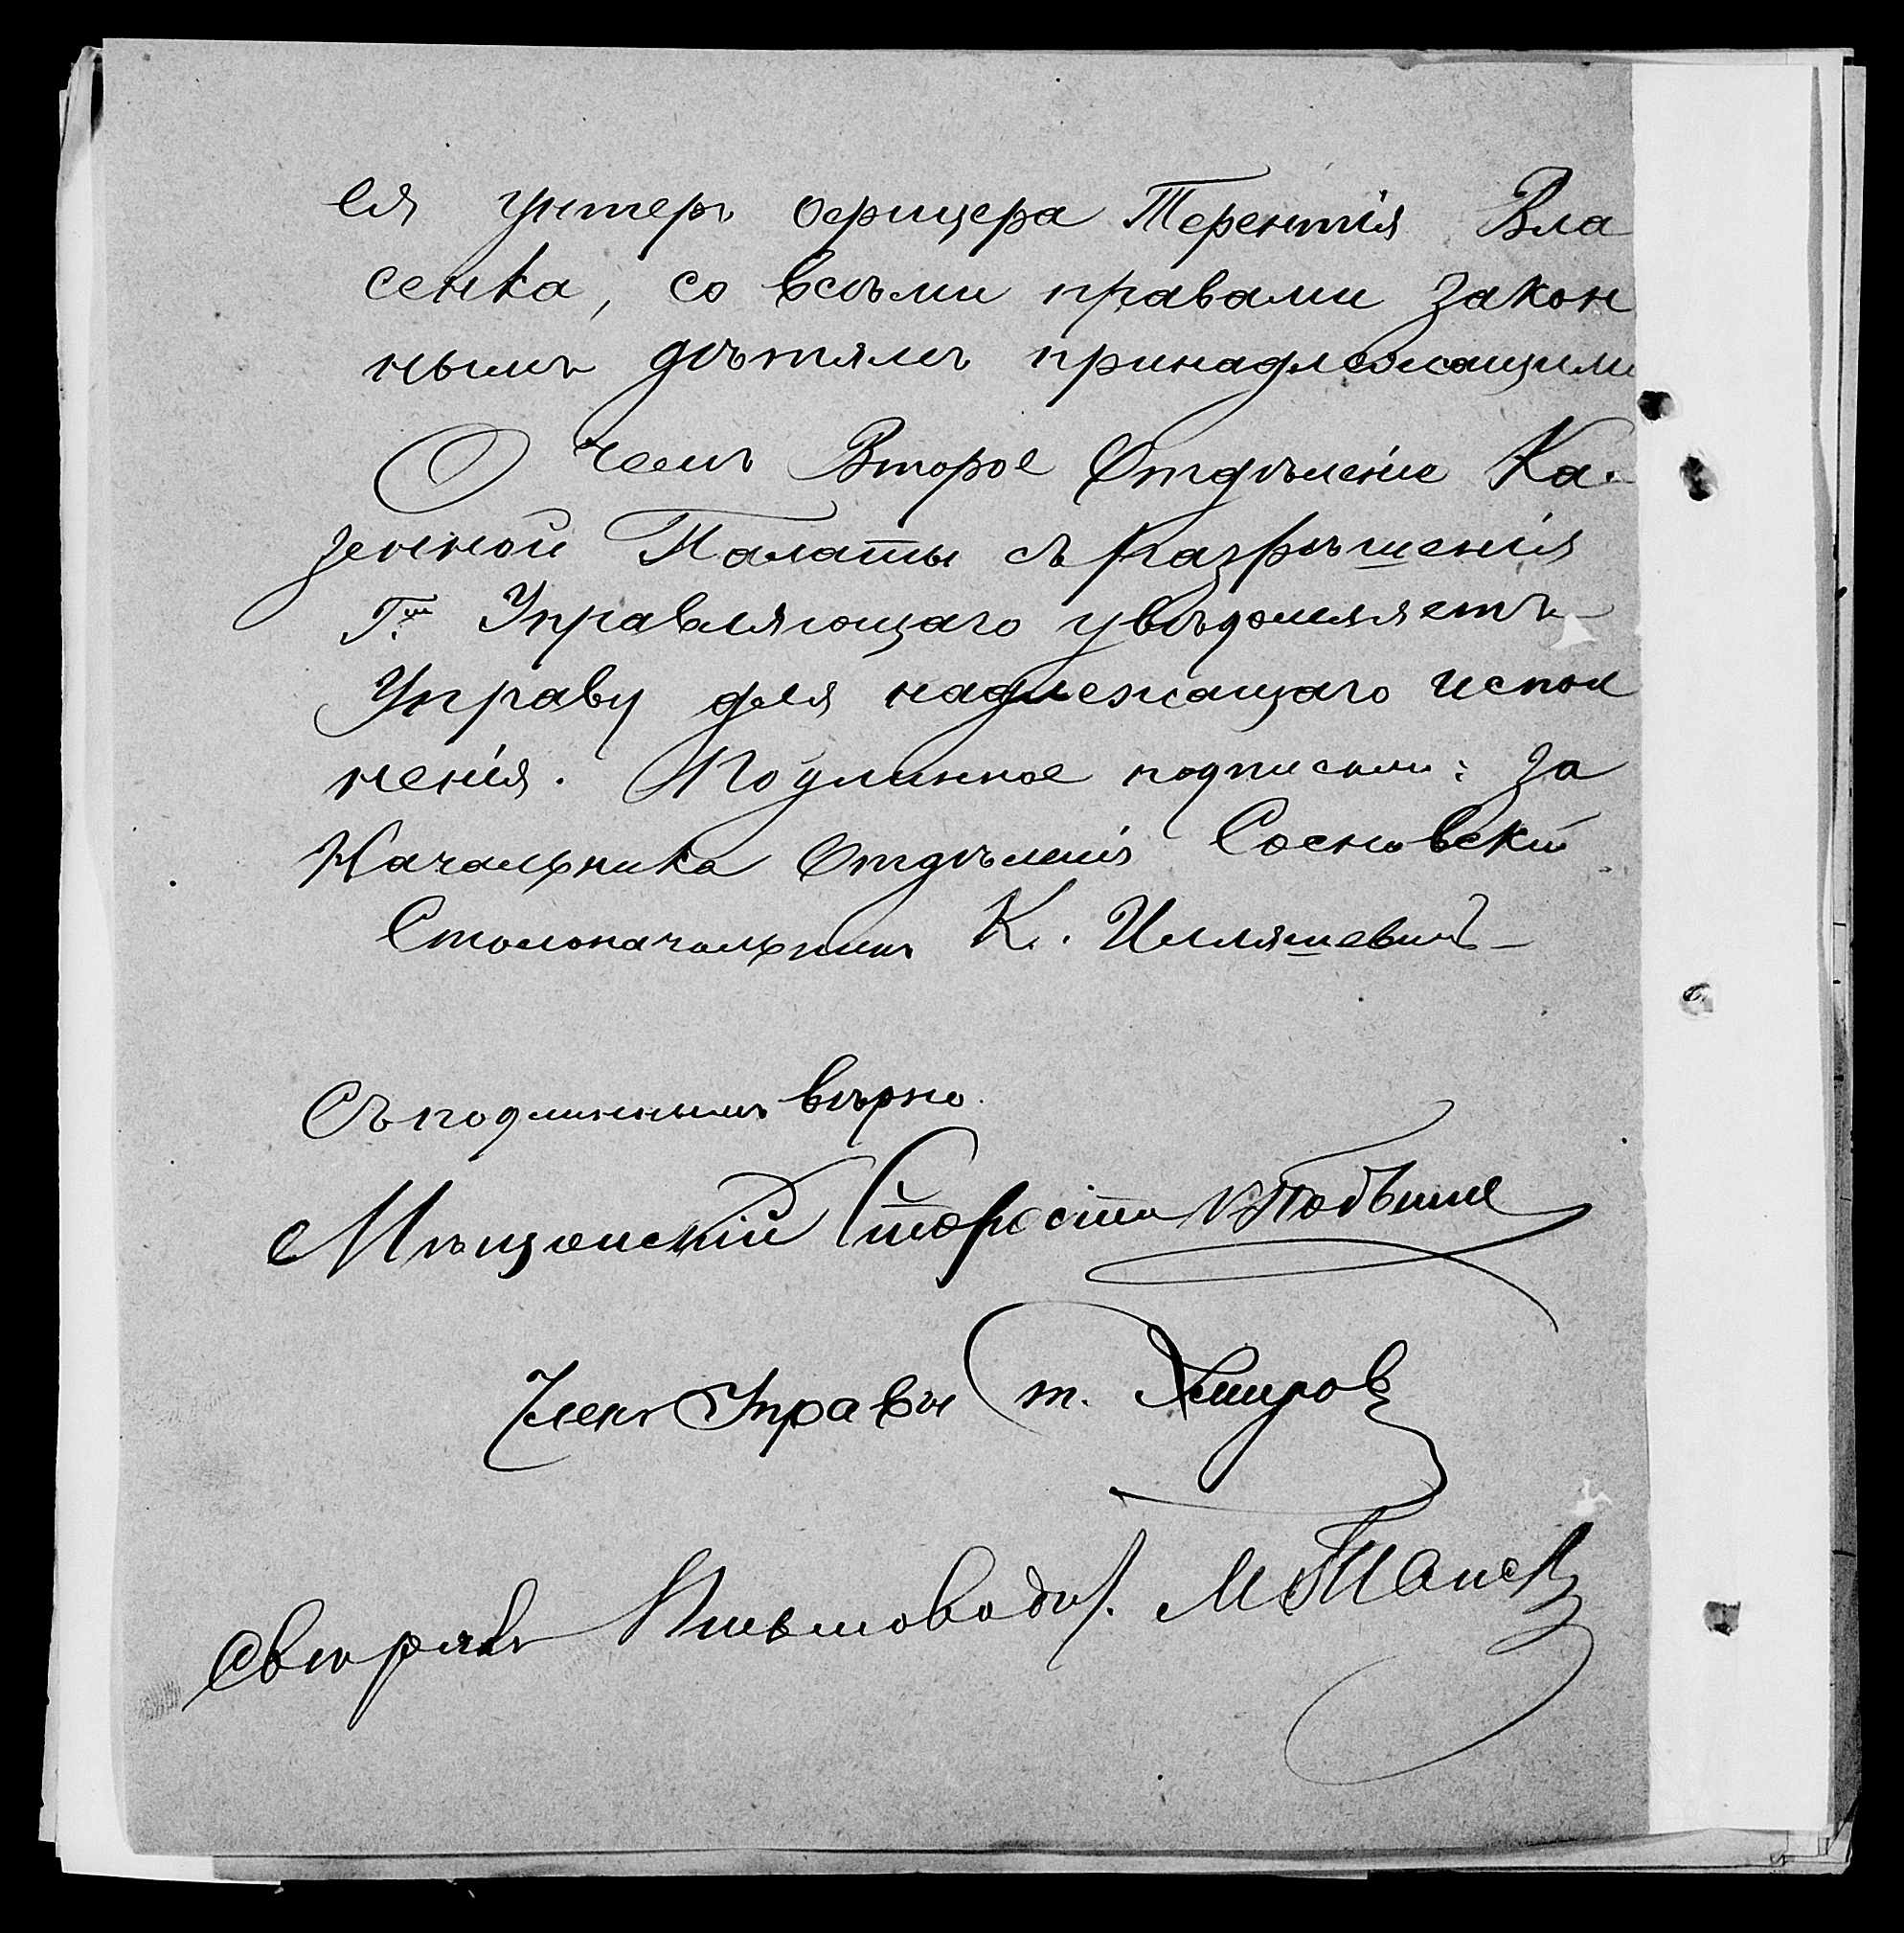 ся унтеръ офицера Терентія Вла
сенка, со всѣми правами закон
нымъ дѣтямъ принадлежащими
О чемъ Второе Отдѣленіе Ка-
зенной Палаты съ разрѣшенія
Г. Управляющаго увѣдомляетъ
Управу для надлежащаго испол
ненія. Подлинное подписали: За
Начальника Отдѣленія Сосновскій
Столоначальникъ К. Илляшевичъ
Съ подлиннымъ вѣрно.
Мѣщанскій Староста
Членъ Управы
Свѣрялъ Письмовод.